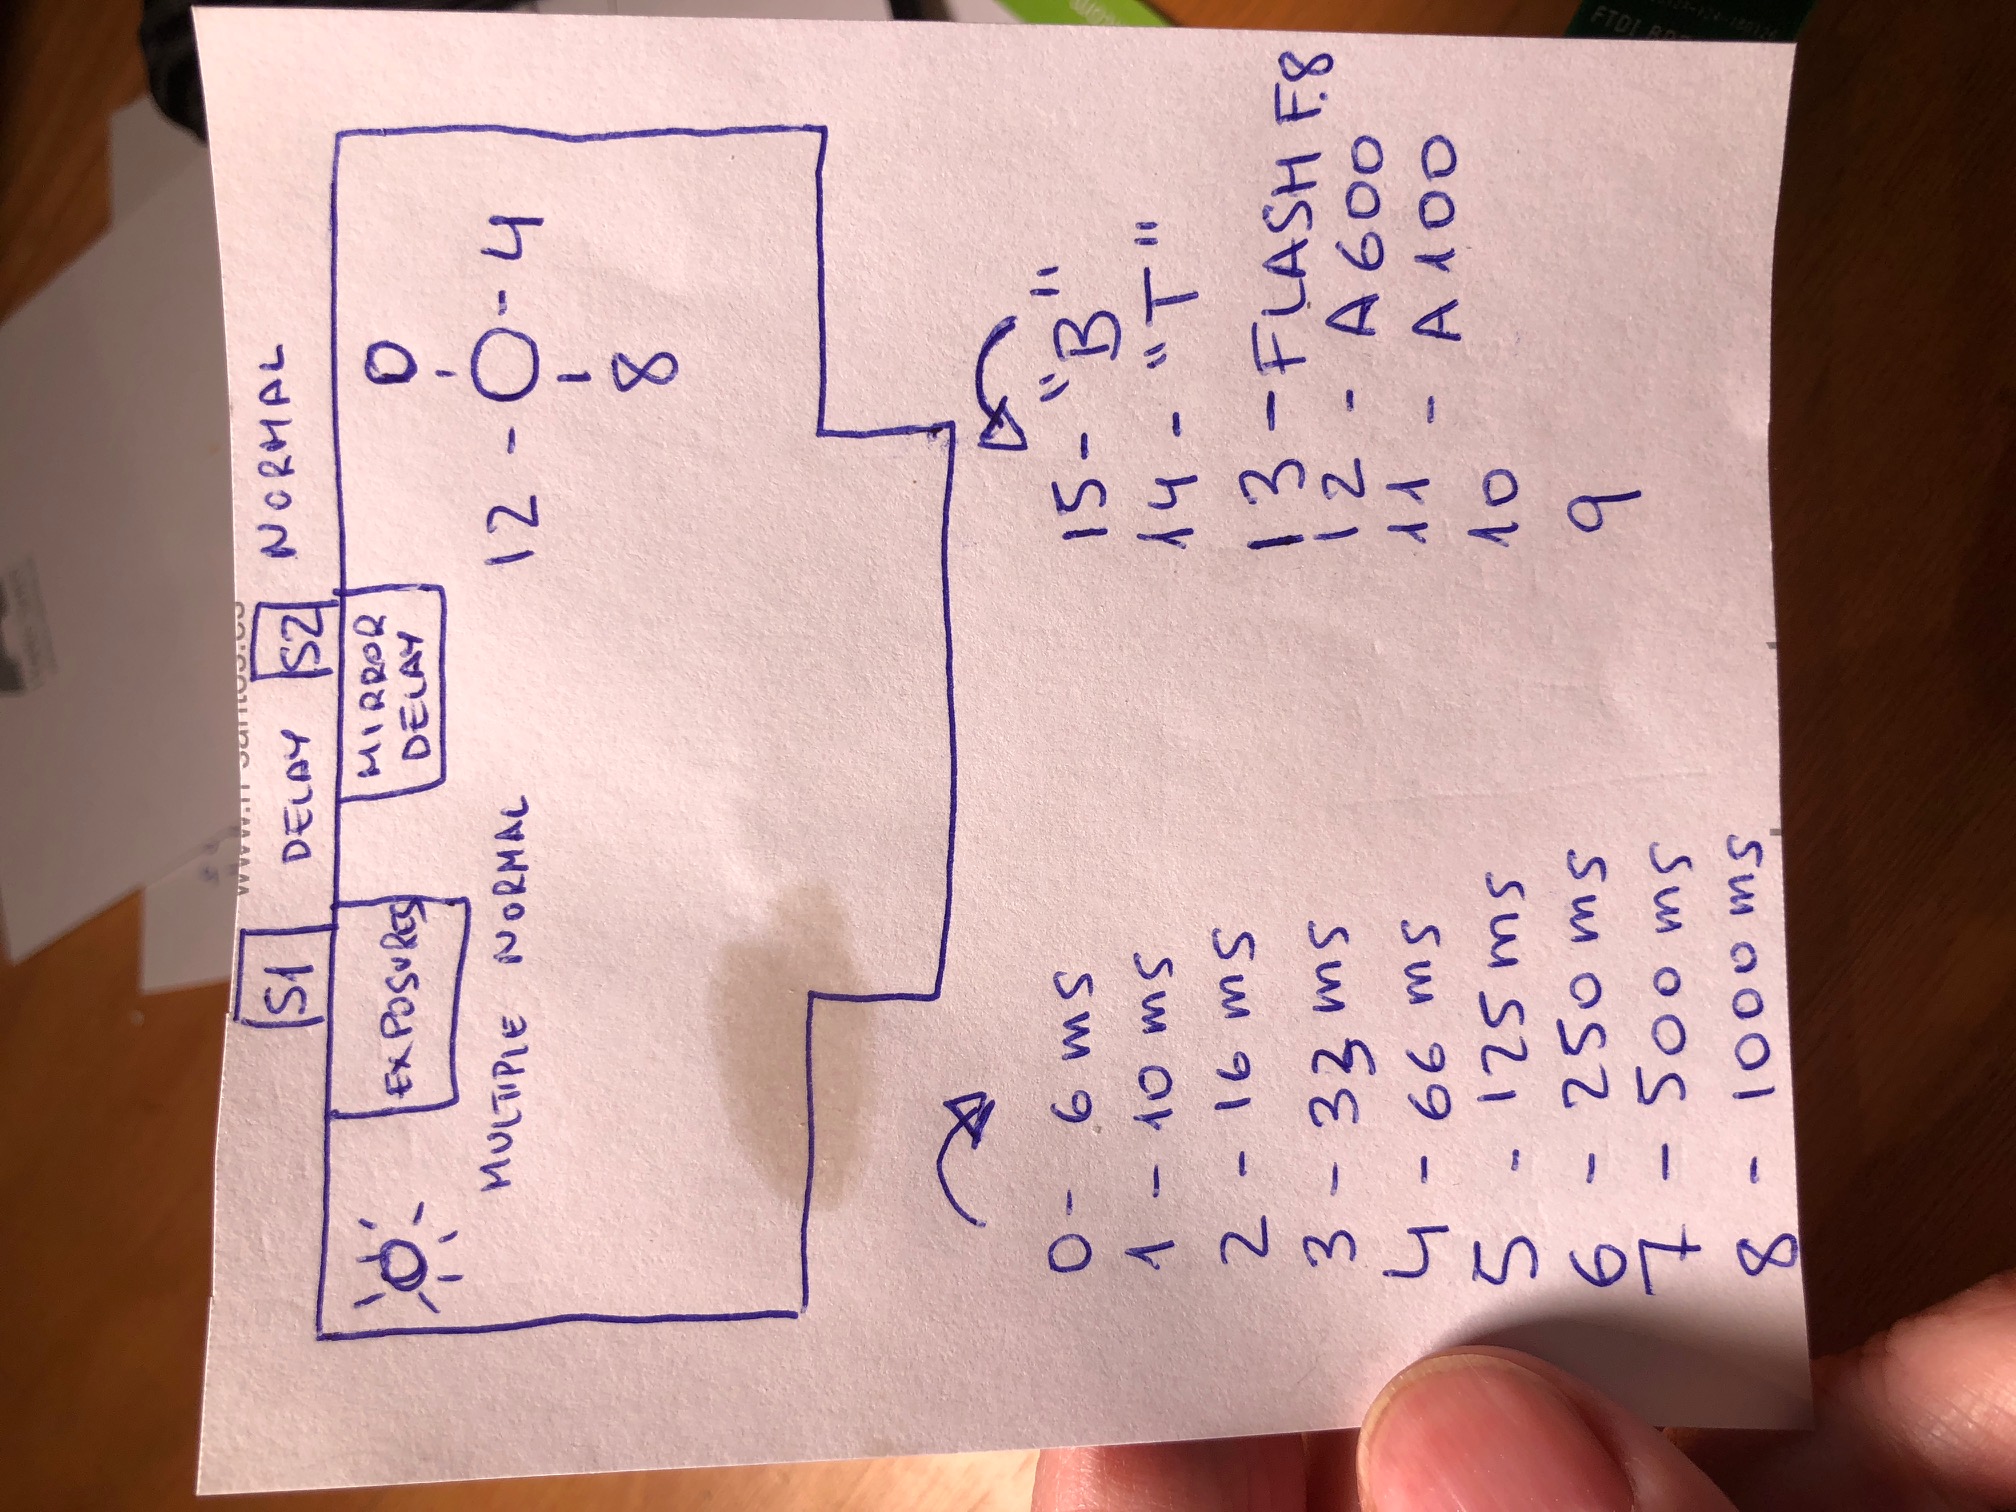 S1 DELAY S2 NORMAL
EXPOSURES
MIRROR
DELAY
MULTIPLE NORMAL
0
12 - O - 4
8
0 - 6 ms
1 - 10 ms
2 - 16 ms
3 - 33 ms
4 - 66 ms
5 - 125 ms
6 - 250 ms
7 - 500 ms
8 - 1000 ms
15 - "B"
14 - "T"
13 - FLASH F.8
12 - A600
11 - A100
10
9